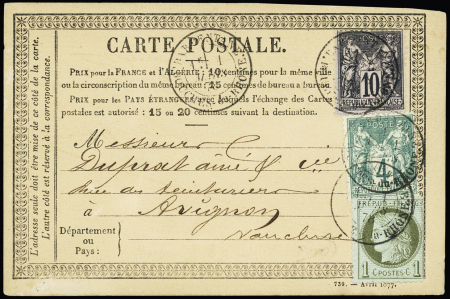 CARTE POSTALE.
PRIX pour la FRANCE et l'ALGÉRIE: 10 centimes pour la même ville
ou la circonscription du même bureau; 15 centimes de bureau à bureau.
PRIX POUR LES PAYS ÉTRANGERS avec lesquels l'échange des Cartes
postales est autorisé : 15 ou 20 centimes suivant la destination.
L'adresse seule doit être mise de ce côté de la carte.
L'autre côté est réservé à la correspondance.
Messieurs
Duprat aîné & Cie
Rue des teinturiers
à Avignon
Vaucluse
Département
ou
Pays:
10
POSTES
4
1 POSTES C
739. — Avril 1877.